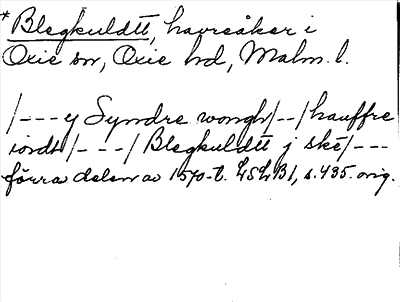 * Blegkuldtt, havreåker i
Oxie sn, Oxie hd, Malm. l.
/---y Syndre wongh/--/hauffre
iordt/---/Blegkuldtt j ske/---
förra delen av 1570-t. LSLB1, s. 435. orig.